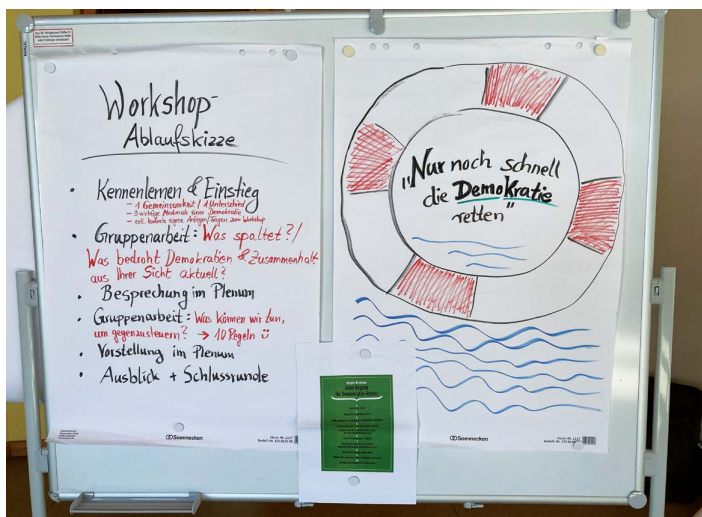 Workshop-
Ablaufskizze
• Kennenlernen & Einstieg
– 1 Gemeinsamkeit / 1 Unterschied
– 3 wichtige Merkmale einer Demokratie
– evtl. konkrete eigene Anliegen/Fragen zum Workshop
• Gruppenarbeit: Was spaltet?/
Was bedroht Demokratien & Zusammenhalt
aus Ihrer Sicht aktuell?
• Besprechung im Plenum
• Gruppenarbeit: Was können wir tun,
um gegenzusteuern? → 10 Regeln
• Vorstellung im Plenum
• Ausblick + Schlussrunde
Soennecken
"Nur noch schnell
die Demokratie
retten"
Soennecken
Zehn Regeln
für Demokratie-Retter